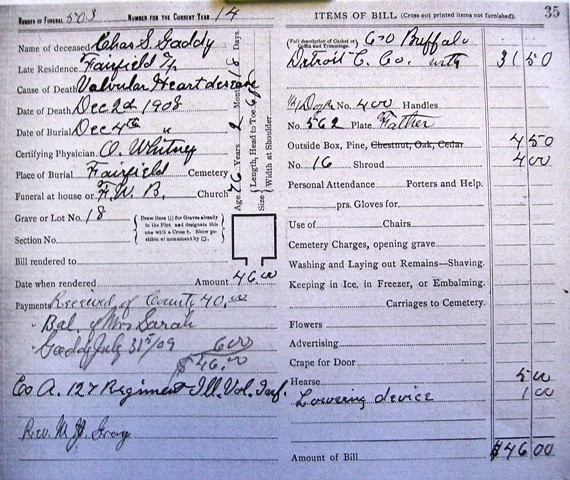 NUMBER OF FUNERAL 503 NUMBER FOR THE CURRENT YEAR 14
Name of deceased Chas S. Gaddy
Late Residence Fairfield
Cause of Death Valvular Heart desease
Date of Death Dec 2d 1908
Date of Burial Dec 4th "
Certifying Physician O. Whitney
Place of Burial Fairfield Cemetery
Funeral at house or F. W. B. Church
Grave or Lot No. 18
Section No.
Draw lines ||| for Graves already in the Plot and designate this one with a Cross †. Show position of monument by □.
Bill rendered to
Date when rendered Amount 46.00
Payments Received of County 40.00
Bal. of Mrs Sarah
Gaddy July 31st/09 6.00
$46.00
Co A. 127 Regiment Ill. Vol. Inf.
Rev. M. Gray
Age 76 Years 2 Months 18 Days.
Size { Length, Head to Toe
Width at Shoulder
ITEMS OF BILL (Cross out printed items not furnished). 35
(Full description of Casket or Coffin and Trimmings. 670 Buffalo
Detroit C. Co. with 31 50
No. 400 Handles
No. 562 Plate Father
Outside Box, Pine, Chestnut, Oak, Cedar 4 50
No. 16 Shroud 4 00
Personal Attendance Porters and Help.
prs. Gloves for
Use of Chairs
Cemetery Charges, opening grave
Washing and Laying out Remains—Shaving.
Keeping in Ice, in Freezer, or Embalming.
Carriages to Cemetery.
Flowers
Advertising
Crape for Door
Hearse 5 00
Lowering device 1 00
Amount of Bill $46 00